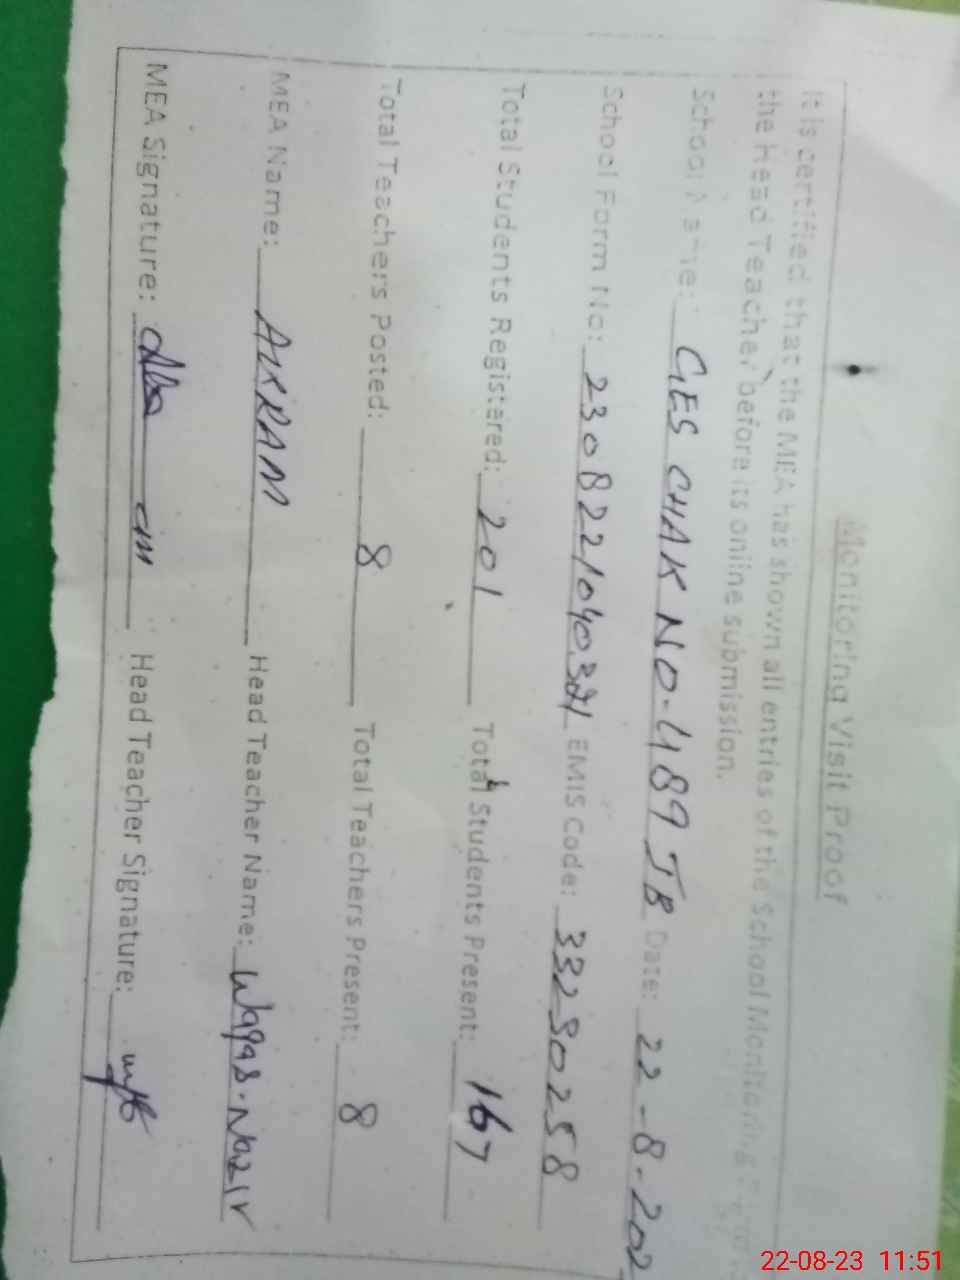 Monitoring Visit Proof
It is certified that the MEA has shown all entries of the School Monitoring
the Head Teacher before its online submission.
School Name: GES CHAK NO-489 JB Date: 22-8-202
School Form No: EMIS Code: 33230258
Total Students Registered: 201 Total Students Present: 167
Total Teachers Posted: 8 Total Teachers Present: 8
MEA Name: AKRAM Head Teacher Name: Waqas.Nazir
MEA Signature: Head Teacher Signature:
22-08-23 11:51